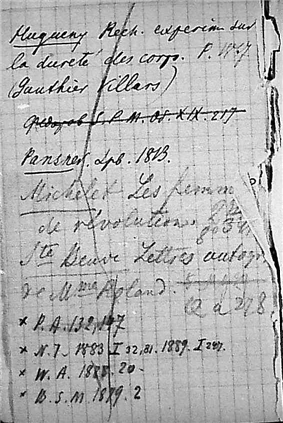 Hugueny Rech. experim sur
la dureté des corps. P. 1877
(Gauthier Villars)
Pansner. Spb. 1813.
Michelet Les femm
de révolution.
Ste Beuve Lettres autogr
de Mme Roland.
Q a 278.
* P. A. 132, 147
* N. J. 1883. I 32, 81. 1889. I 247.
* W. A. 1888. 20 -
* B. S. M. 1879. 2